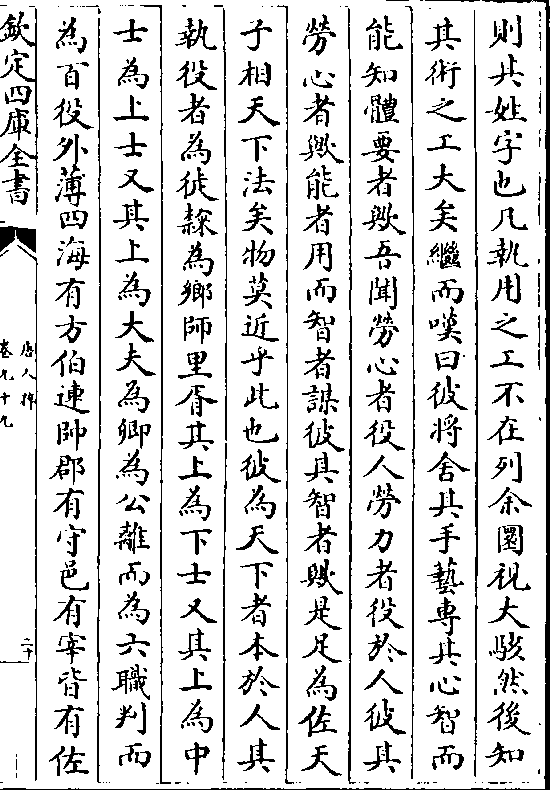 則其姓字也凡執用之工不在列余圜視大駭然後知
其術之工大矣繼而嘆曰彼將舍其手藝專其心智而
能知體要者歟吾聞勞心者役人勞力者役於人彼其
勞心者歟能者用而智者謀彼其智者歟是足為佐天
子相天下法矣物莫近乎此也彼為天下者本於人其
執役者為徒隸為鄉師里胥其上為下士又其上為中
士為上士又其上為大夫為卿為公離而為六職判而
為百役外薄四海有方伯連帥郡有守邑有宰皆有佐
欽定四庫全書
卷九十九
二十